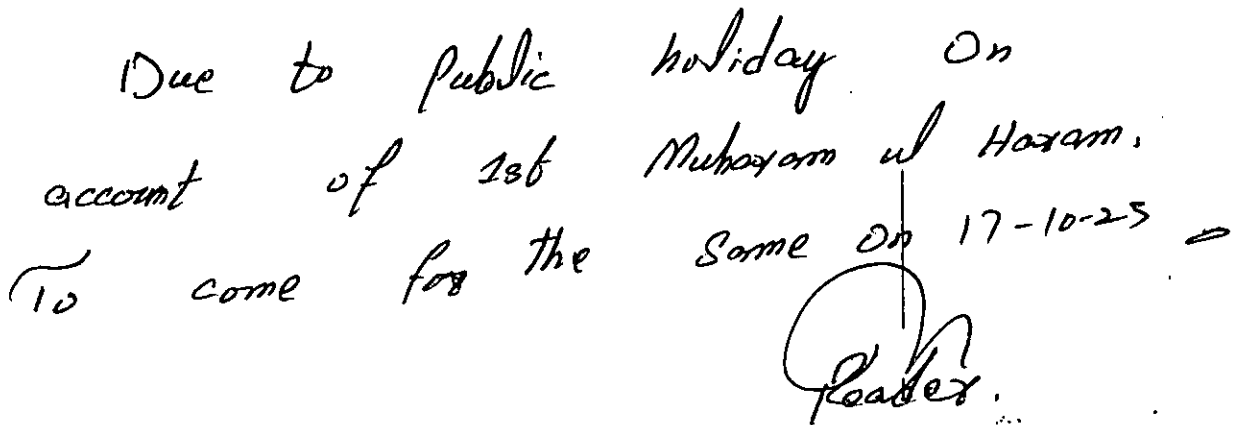 Due to Public holiday On
account of 1st Muharam ul Haram.
To come for the Same on 17-10-25
Reader.